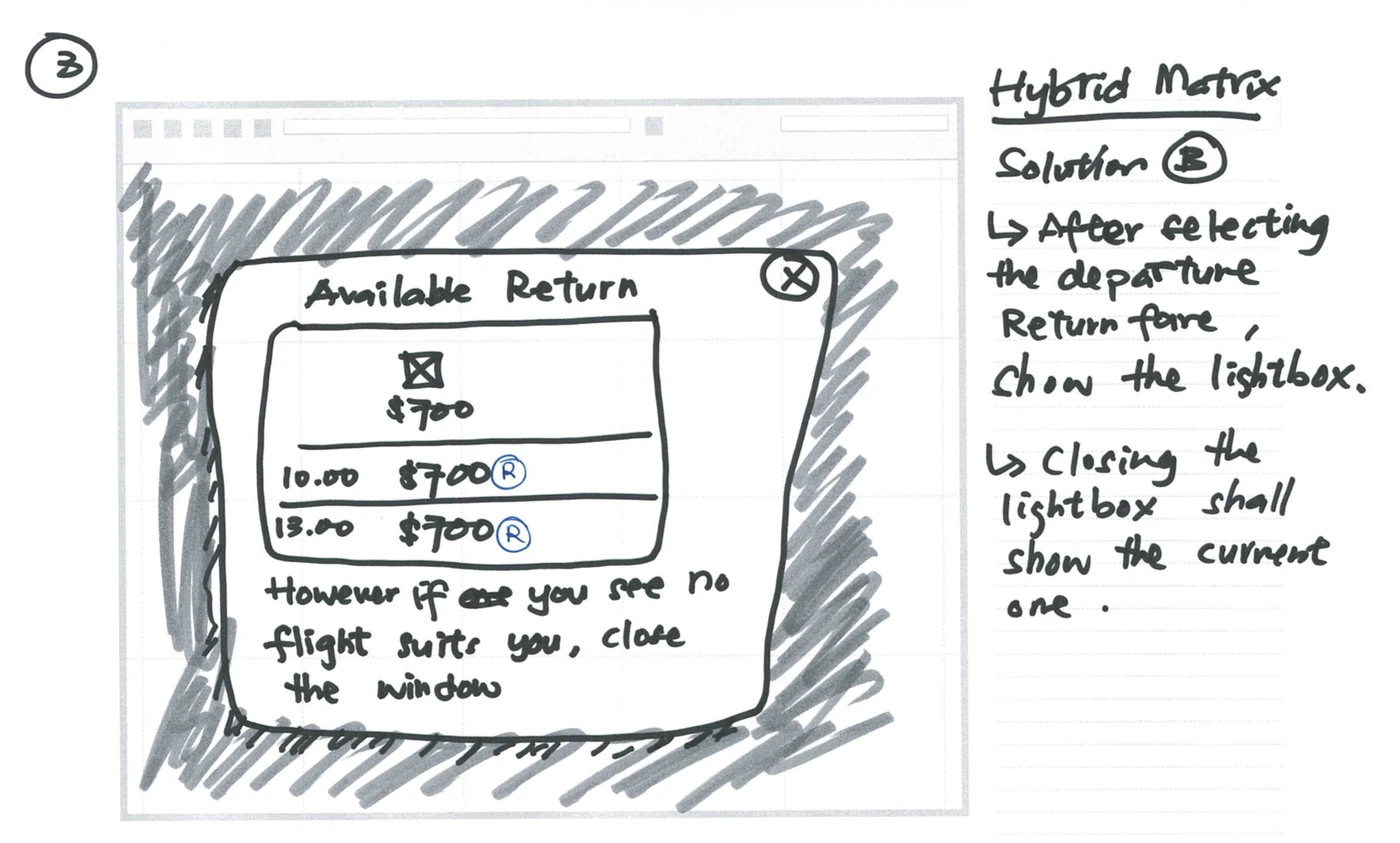 3
Available Return
X
$700
10.00 $700 R
13.00 $700 R
However if you see no
flight suits you, close
the window
Hybrid Matrix
Solution B
↳ After selecting
the departure
Return fare,
show the lightbox.
↳ Closing the
lightbox shall
show the current
one.